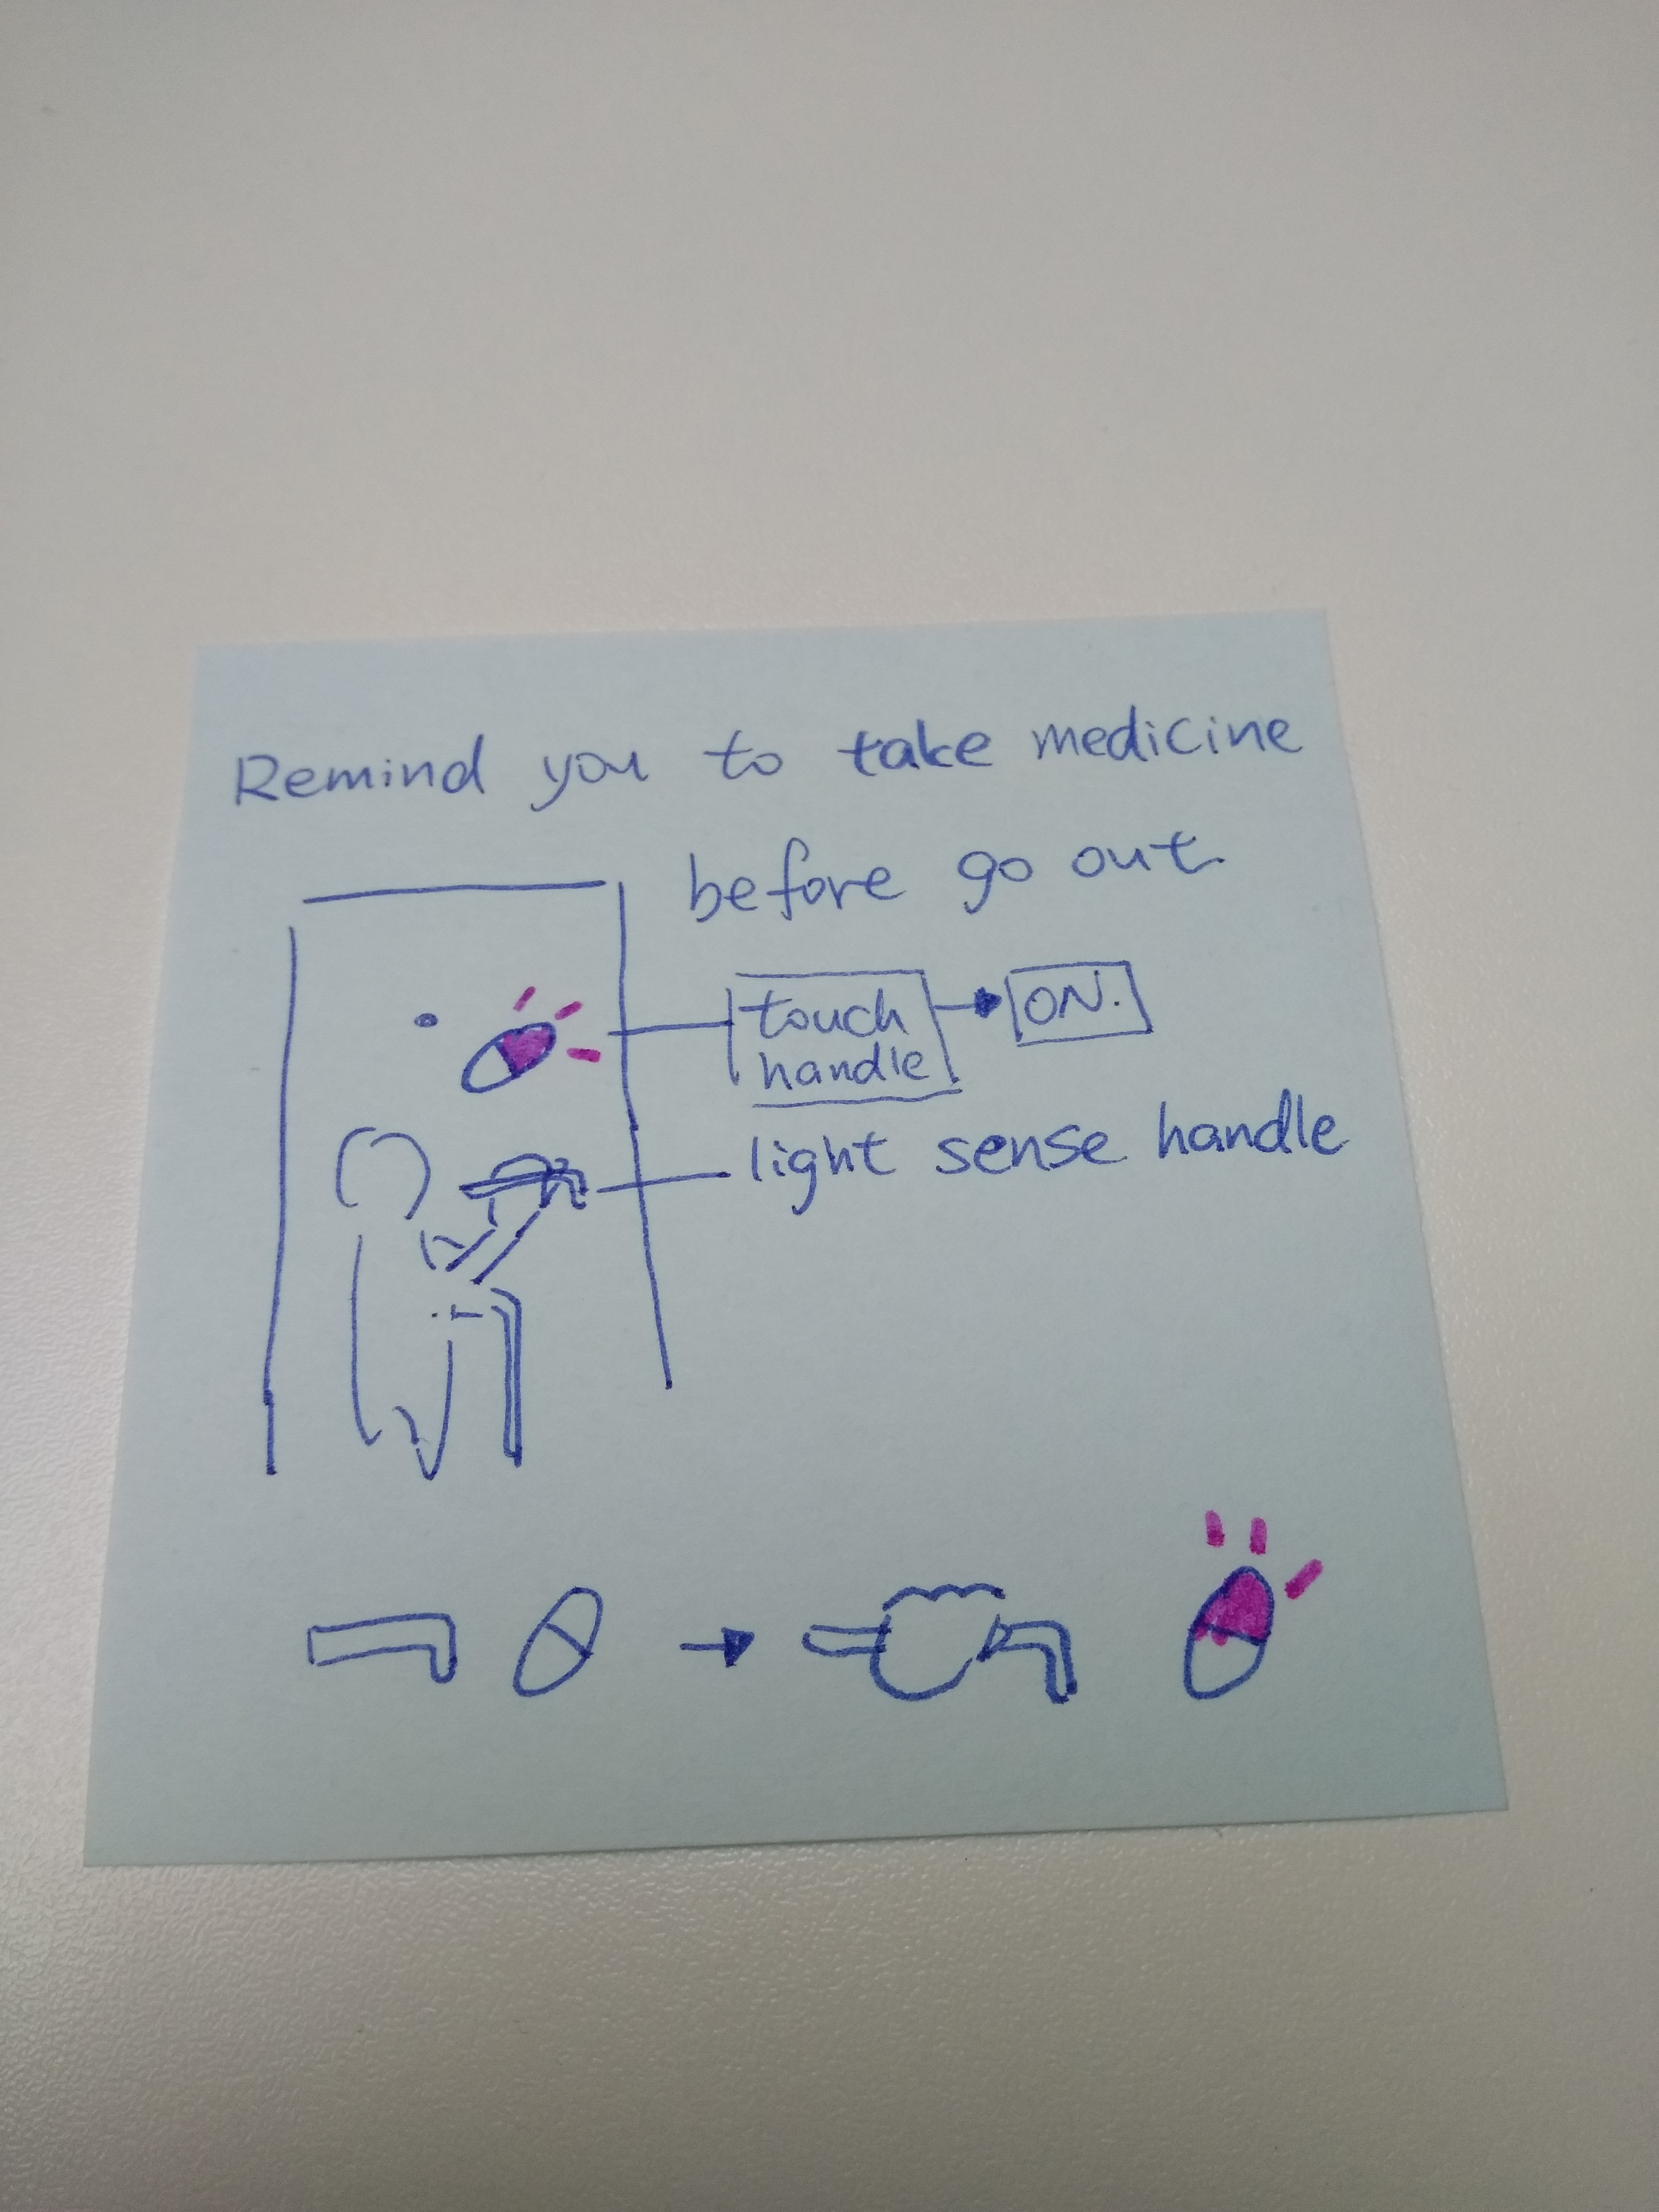 Remind you to take medicine
before go out
touch
handle
ON.
light sense handle